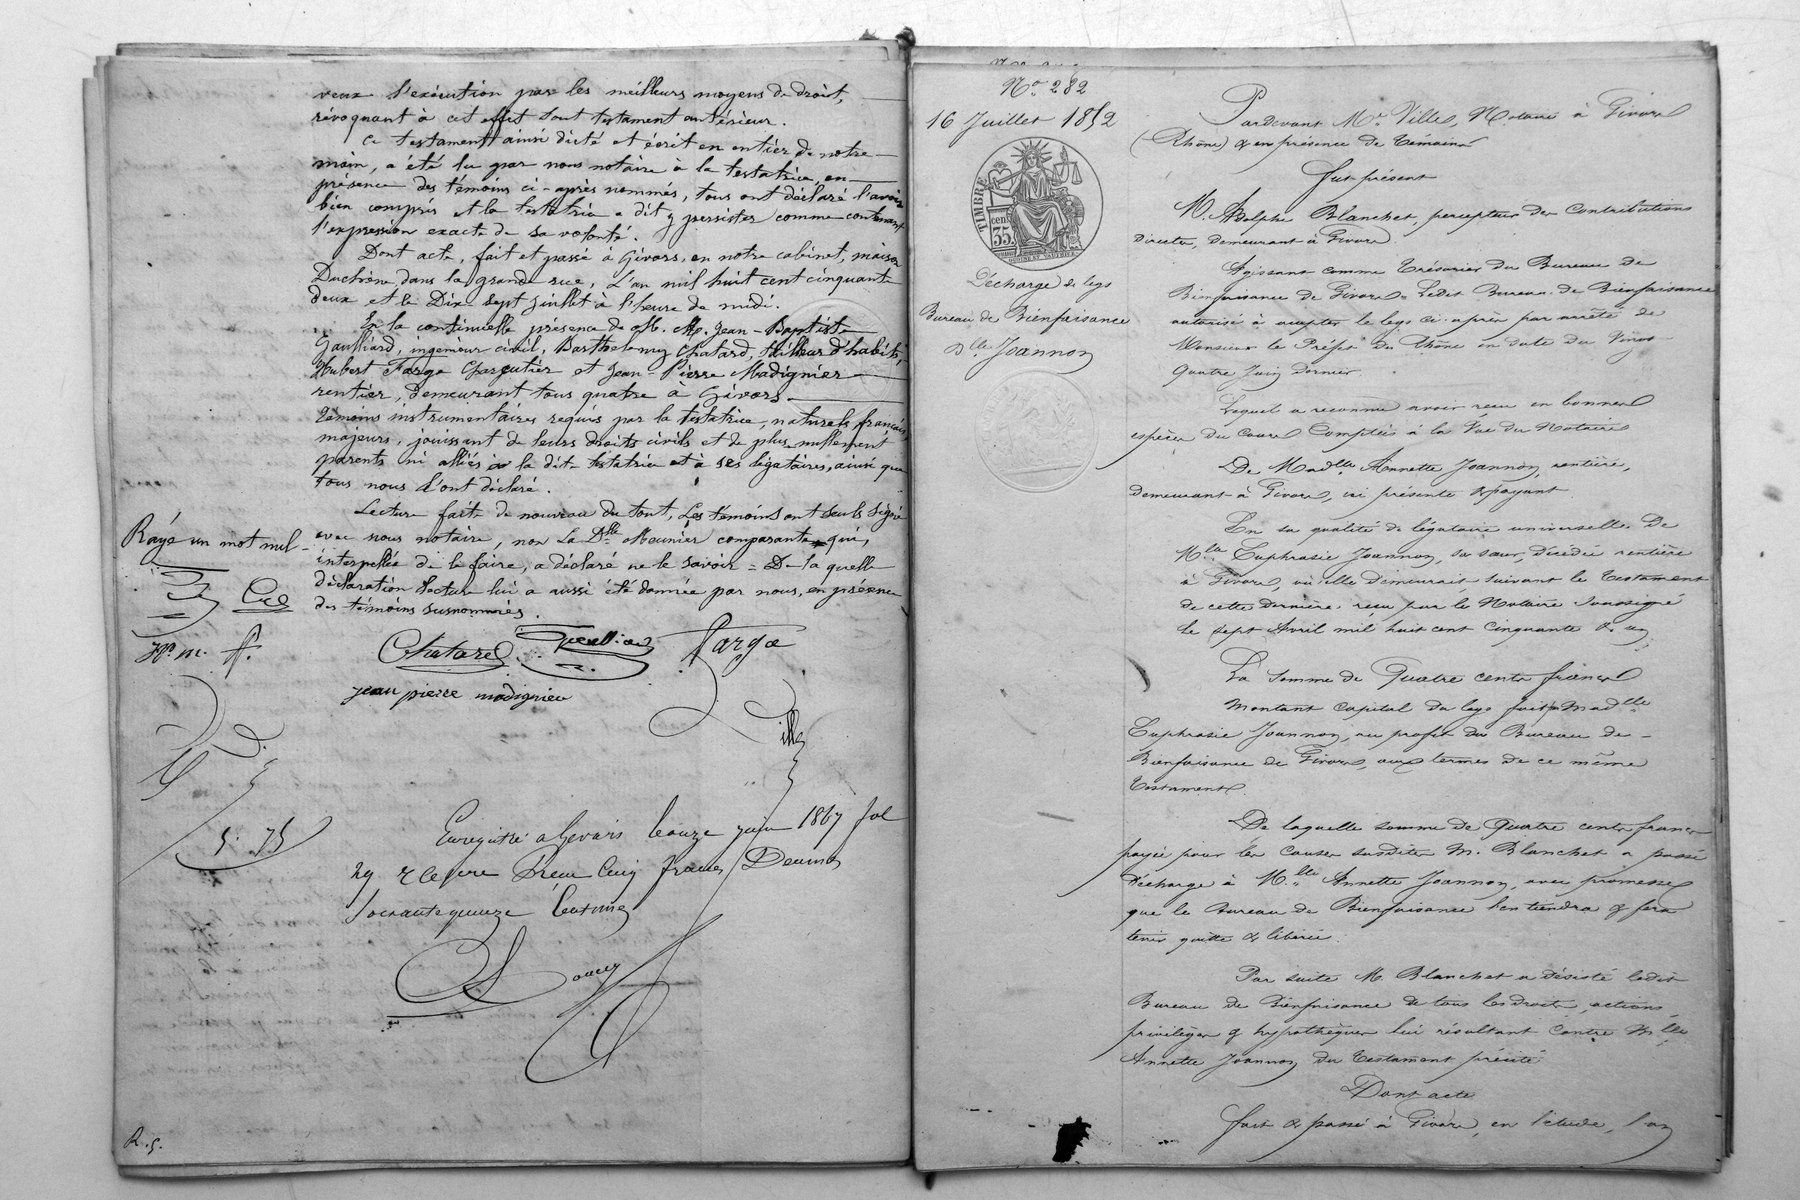 veux l'exécution par les meilleurs moyens de droit,
révoquant à cet effet tout testament antérieur.
Ce testament ainsi dicté et écrit en entier de notre
main, a été lu par nous notaire à la testatrice, en
présence des témoins ci-après nommés, tous ont déclaré l'avoir
bien compris et la testatrice a dit y persister comme contenant
l'expression exacte de sa volonté.
Dont acte, fait et passé à Givors, en notre cabinet, maison
Duchêne, dans la grande rue, L'an mil huit cent cinquante
deux et le Dix sept juillet à l'heure de midi.
En la continuelle présence de M. M. Jean-Baptiste
Gaulliard, ingénieur civil, Barthelemy Chatard, tailleur d'habits,
Hubert Farge Charcutier et Jean-Pierre Madignier
rentier, demeurant tous quatre à Givors.
Témoins instrumentaires requis par la testatrice, naturels français,
majeurs, jouissant de leurs droits civils et de plus nullement
parents ni alliés à la dite testatrice et à ses légataires, ainsi que
tous nous l'ont déclaré.
Lecture faite de nouveau du tout, Les témoins ont seuls signé
avec nous notaire, non la Dlle Meunier comparante qui,
interpellée de le faire, a déclaré ne le savoir = De la quelle
déclaration lecture lui a aussi été donnée par nous, en présence
des témoins susnommés.
Rayé un mot nul
Chatard Gaulliard Farge
jean pierre madignier
Ville
5. 75
Enregistré a Givors le onze juin 1867 fol
29 Recu Cinq francs Decimes
soixante quinze Centimes
R. 5.
No 282
16 Juillet 1852
TIMBRE
35 cent
Décharge de legs
Bureau de Bienfaisance
Dlle Joannon
Pardevant Me Ville, Notaire à Givors
(Rhône) & en présence de témoins
fut présent
M. Adolphe Blanchet, percepteur des Contributions
directes, demeurant à Givors.
Agissant comme Trésorier du Bureau de
Bienfaisance de Givors. Ledit Bureau de Bienfaisance
autorisé à accepter le legs ci-après par arrêté de
Monsieur le Préfet du Rhône en date du Vingt-
Quatre Juin dernier.
Lequel a reconnu avoir reçu en bonnes
espèces du cours Comptées à la Vue du Notaire
De Madlle Annette Joannon, rentière,
demeurant à Givors, ici présente & payant
En sa qualité de légataire universelle de
Mlle Euphrasie Joannon, sa sœur, décédée rentière
à Givors, où elle demeurait, suivant le Testament
de cette dernière, reçu par le Notaire soussigné
le sept Avril mil huit cent cinquante & un,
La somme de Quatre cents francs
montant capital du legs fait par Madlle
Euphrasie Joannon, au profit du Bureau de
Bienfaisance de Givors, aux termes de ce même
Testament.
De laquelle somme de Quatre cents francs
payée pour les causes susdites M. Blanchet a passé
Décharge à Mlle Annette Joannon, avec promesse
que le Bureau de Bienfaisance l'en tiendra & fera
tenir quitte & libérée.
Par suite M. Blanchet a désisté ledit
Bureau de Bienfaisance de tous les droits, actions,
privilèges & hypothèques lui résultant contre Mlle
Annette Joannon du Testament précité
Dont acte
fait & passé à Givors, en l'étude, l'an